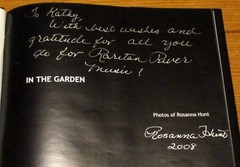 To Kathy,
With best wishes and
gratitude for all you
do for Raritan River
Music!
IN THE GARDEN
Photos of Rosanna Hunt
Rosanna Hunt
2008